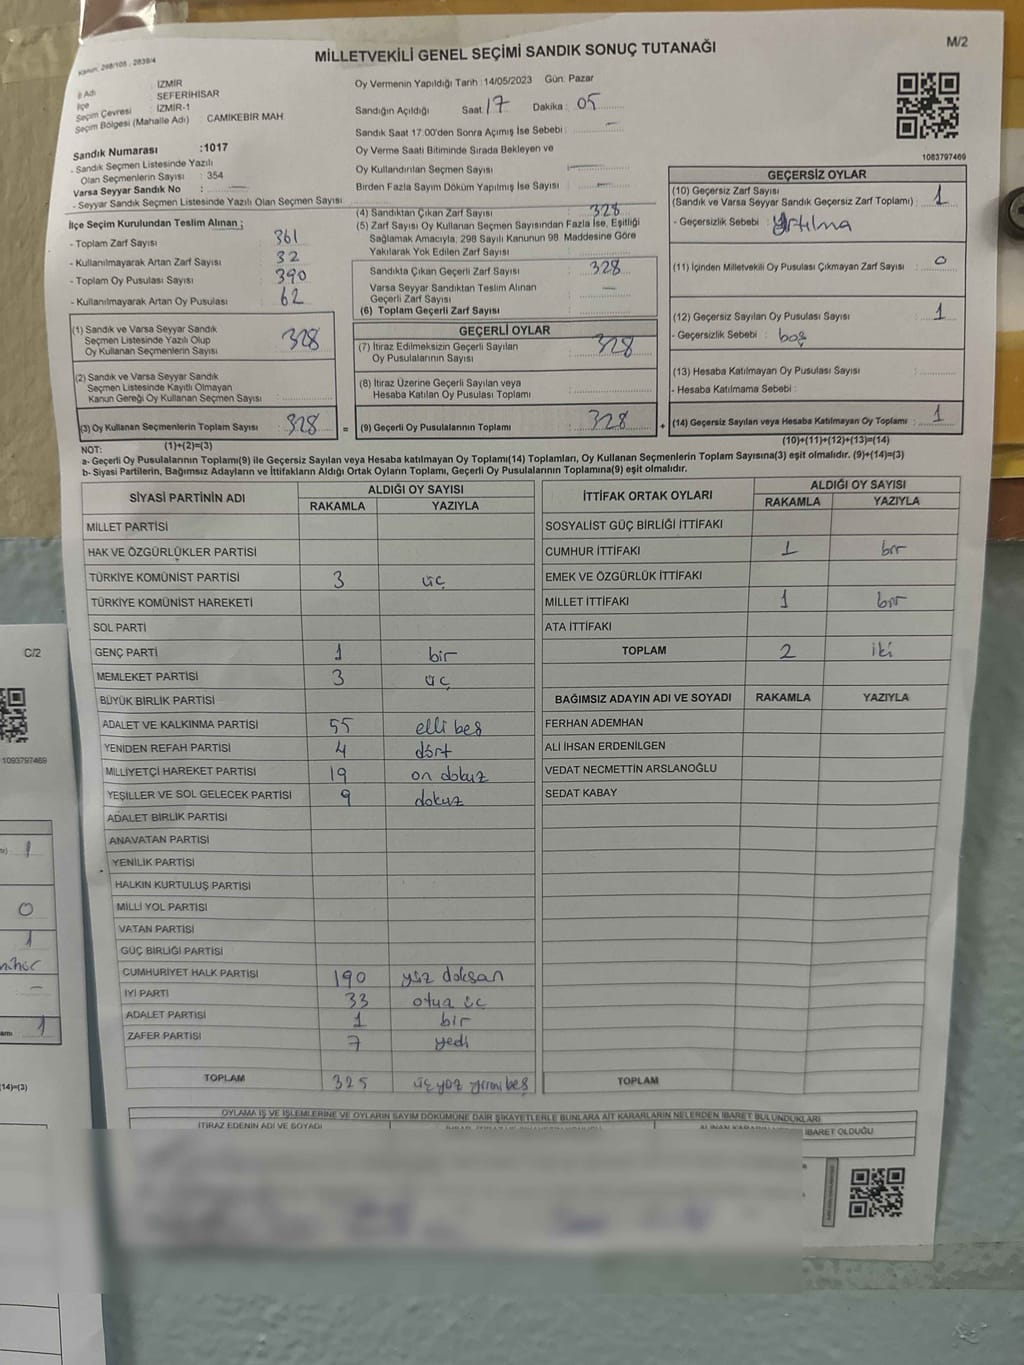 MİLLETVEKİLİ GENEL SEÇİMİ SANDIK SONUÇ TUTANAĞI
M/2
Kanun: 298/105 , 2839/4
İl Adı : İZMİR
İlçe : SEFERİHİSAR
Seçim Çevresi : İZMİR-1
Seçim Bölgesi (Mahalle Adı) : CAMİKEBİR MAH.
Sandık Numarası :1017
- Sandık Seçmen Listesinde Yazılı
Olan Seçmenlerin Sayısı : 354
Varsa Seyyar Sandık No :
- Seyyar Sandık Seçmen Listesinde Yazılı Olan Seçmen Sayısı
Oy Vermenin Yapıldığı Tarih : 14/05/2023 Gün: Pazar
Sandığın Açıldığı Saat : 17 Dakika : 05
Sandık Saat 17.00'den Sonra Açımış İse Sebebi : —
Oy Verme Saati Bitiminde Sırada Bekleyen ve
Oy Kullandırılan Seçmen Sayısı : —
Birden Fazla Sayım Döküm Yapılmış İse Sayısı : —
1083797469
İlçe Seçim Kurulundan Teslim Alınan ;
- Toplam Zarf Sayısı : 361
- Kullanılmayarak Artan Zarf Sayısı : 32
- Toplam Oy Pusulası Sayısı : 390
- Kullanılmayarak Artan Oy Pusulası : 62
(1) Sandık ve Varsa Seyyar Sandık
Seçmen Listesinde Yazılı Olup
Oy Kullanan Seçmenlerin Sayısı : 328
(2) Sandık ve Varsa Seyyar Sandık
Seçmen Listesinde Kayıtlı Olmayan
Kanun Gereği Oy Kullanan Seçmen Sayısı :
(3) Oy Kullanan Seçmenlerin Toplam Sayısı : 328
(4) Sandıktan Çıkan Zarf Sayısı : 328
(5) Zarf Sayısı Oy Kullanan Seçmen Sayısından Fazla İse, Eşitliği
Sağlamak Amacıyla, 298 Sayılı Kanunun 98. Maddesine Göre
Yakılarak Yok Edilen Zarf Sayısı :
Sandıkta Çıkan Geçerli Zarf Sayısı : 328
Varsa Seyyar Sandıktan Teslim Alınan
Geçerli Zarf Sayısı : —
(6) Toplam Geçerli Zarf Sayısı :
GEÇERLİ OYLAR
(7) İtiraz Edilmeksizin Geçerli Sayılan
Oy Pusulalarının Sayısı : 328
(8) İtiraz Üzerine Geçerli Sayılan veya
Hesaba Katılan Oy Pusulası Toplamı :
= (9) Geçerli Oy Pusulalarının Toplamı : 328
GEÇERSİZ OYLAR
(10) Geçersiz Zarf Sayısı
(Sandık ve Varsa Seyyar Sandık Geçersiz Zarf Toplamı) : 1
- Geçersizlik Sebebi : Yırtılma
(11) İçinden Milletvekili Oy Pusulası Çıkmayan Zarf Sayısı : 0
(12) Geçersiz Sayılan Oy Pusulası Sayısı : 1
- Geçersizlik Sebebi : boş
(13) Hesaba Katılmayan Oy Pusulası Sayısı :
- Hesaba Katılmama Sebebi :
+ (14) Geçersiz Sayılan veya Hesaba Katılmayan Oy Toplamı : 1
NOT: (1)+(2)=(3)
(10)+(11)+(12)+(13)=(14)
a- Geçerli Oy Pusulalarının Toplamı(9) ile Geçersiz Sayılan veya Hesaba Katılmayan Oy Toplamı(14) Toplamları, Oy Kullanan Seçmenlerin Toplam Sayısına(3) eşit olmalıdır. (9)+(14)=(3)
b- Siyasi Partilerin, Bağımsız Adayların ve İttifakların Aldığı Ortak Oyların Toplamı, Geçerli Oy Pusulalarının Toplamına(9) eşit olmalıdır.
SİYASİ PARTİNİN ADI ALDIĞI OY SAYISI
RAKAMLA YAZIYLA
MİLLET PARTİSİ
HAK VE ÖZGÜRLÜKLER PARTİSİ
TÜRKİYE KOMÜNİST PARTİSİ 3 üç
TÜRKİYE KOMÜNİST HAREKETİ
SOL PARTİ
GENÇ PARTİ 1 bir
MEMLEKET PARTİSİ 3 üç
BÜYÜK BİRLİK PARTİSİ
ADALET VE KALKINMA PARTİSİ 55 elli beş
YENİDEN REFAH PARTİSİ 4 dört
MİLLİYETÇİ HAREKET PARTİSİ 19 on dokuz
YEŞİLLER VE SOL GELECEK PARTİSİ 9 dokuz
ADALET BİRLİK PARTİSİ
ANAVATAN PARTİSİ
YENİLİK PARTİSİ
HALKIN KURTULUŞ PARTİSİ
MİLLİ YOL PARTİSİ
VATAN PARTİSİ
GÜÇ BİRLİĞİ PARTİSİ
CUMHURİYET HALK PARTİSİ 190 yüz doksan
İYİ PARTİ 33 otuz üç
ADALET PARTİSİ 1 bir
ZAFER PARTİSİ 7 yedi
TOPLAM 325 üç yüz yirmi beş
İTTİFAK ORTAK OYLARI ALDIĞI OY SAYISI
RAKAMLA YAZIYLA
SOSYALİST GÜÇ BİRLİĞİ İTTİFAKI
CUMHUR İTTİFAKI 1 bir
EMEK VE ÖZGÜRLÜK İTTİFAKI
MİLLET İTTİFAKI 1 bir
ATA İTTİFAKI
TOPLAM 2 iki
BAĞIMSIZ ADAYIN ADI VE SOYADI RAKAMLA YAZIYLA
FERHAN ADEMHAN
ALİ İHSAN ERDENİLGEN
VEDAT NECMETTİN ARSLANOĞLU
SEDAT KABAY
TOPLAM
OYLAMA İŞ VE İŞLEMLERİNE VE OYLARIN SAYIM DÖKÜMÜNE DAİR ŞİKAYETLERLE BUNLARA AİT KARARLARIN NELERDEN İBARET BULUNDUKLARI
İTİRAZ EDENİN ADI VE SOYADI
İBARET OLDUĞU
C/2
1093797469
1
0
1
1
14)=(3)